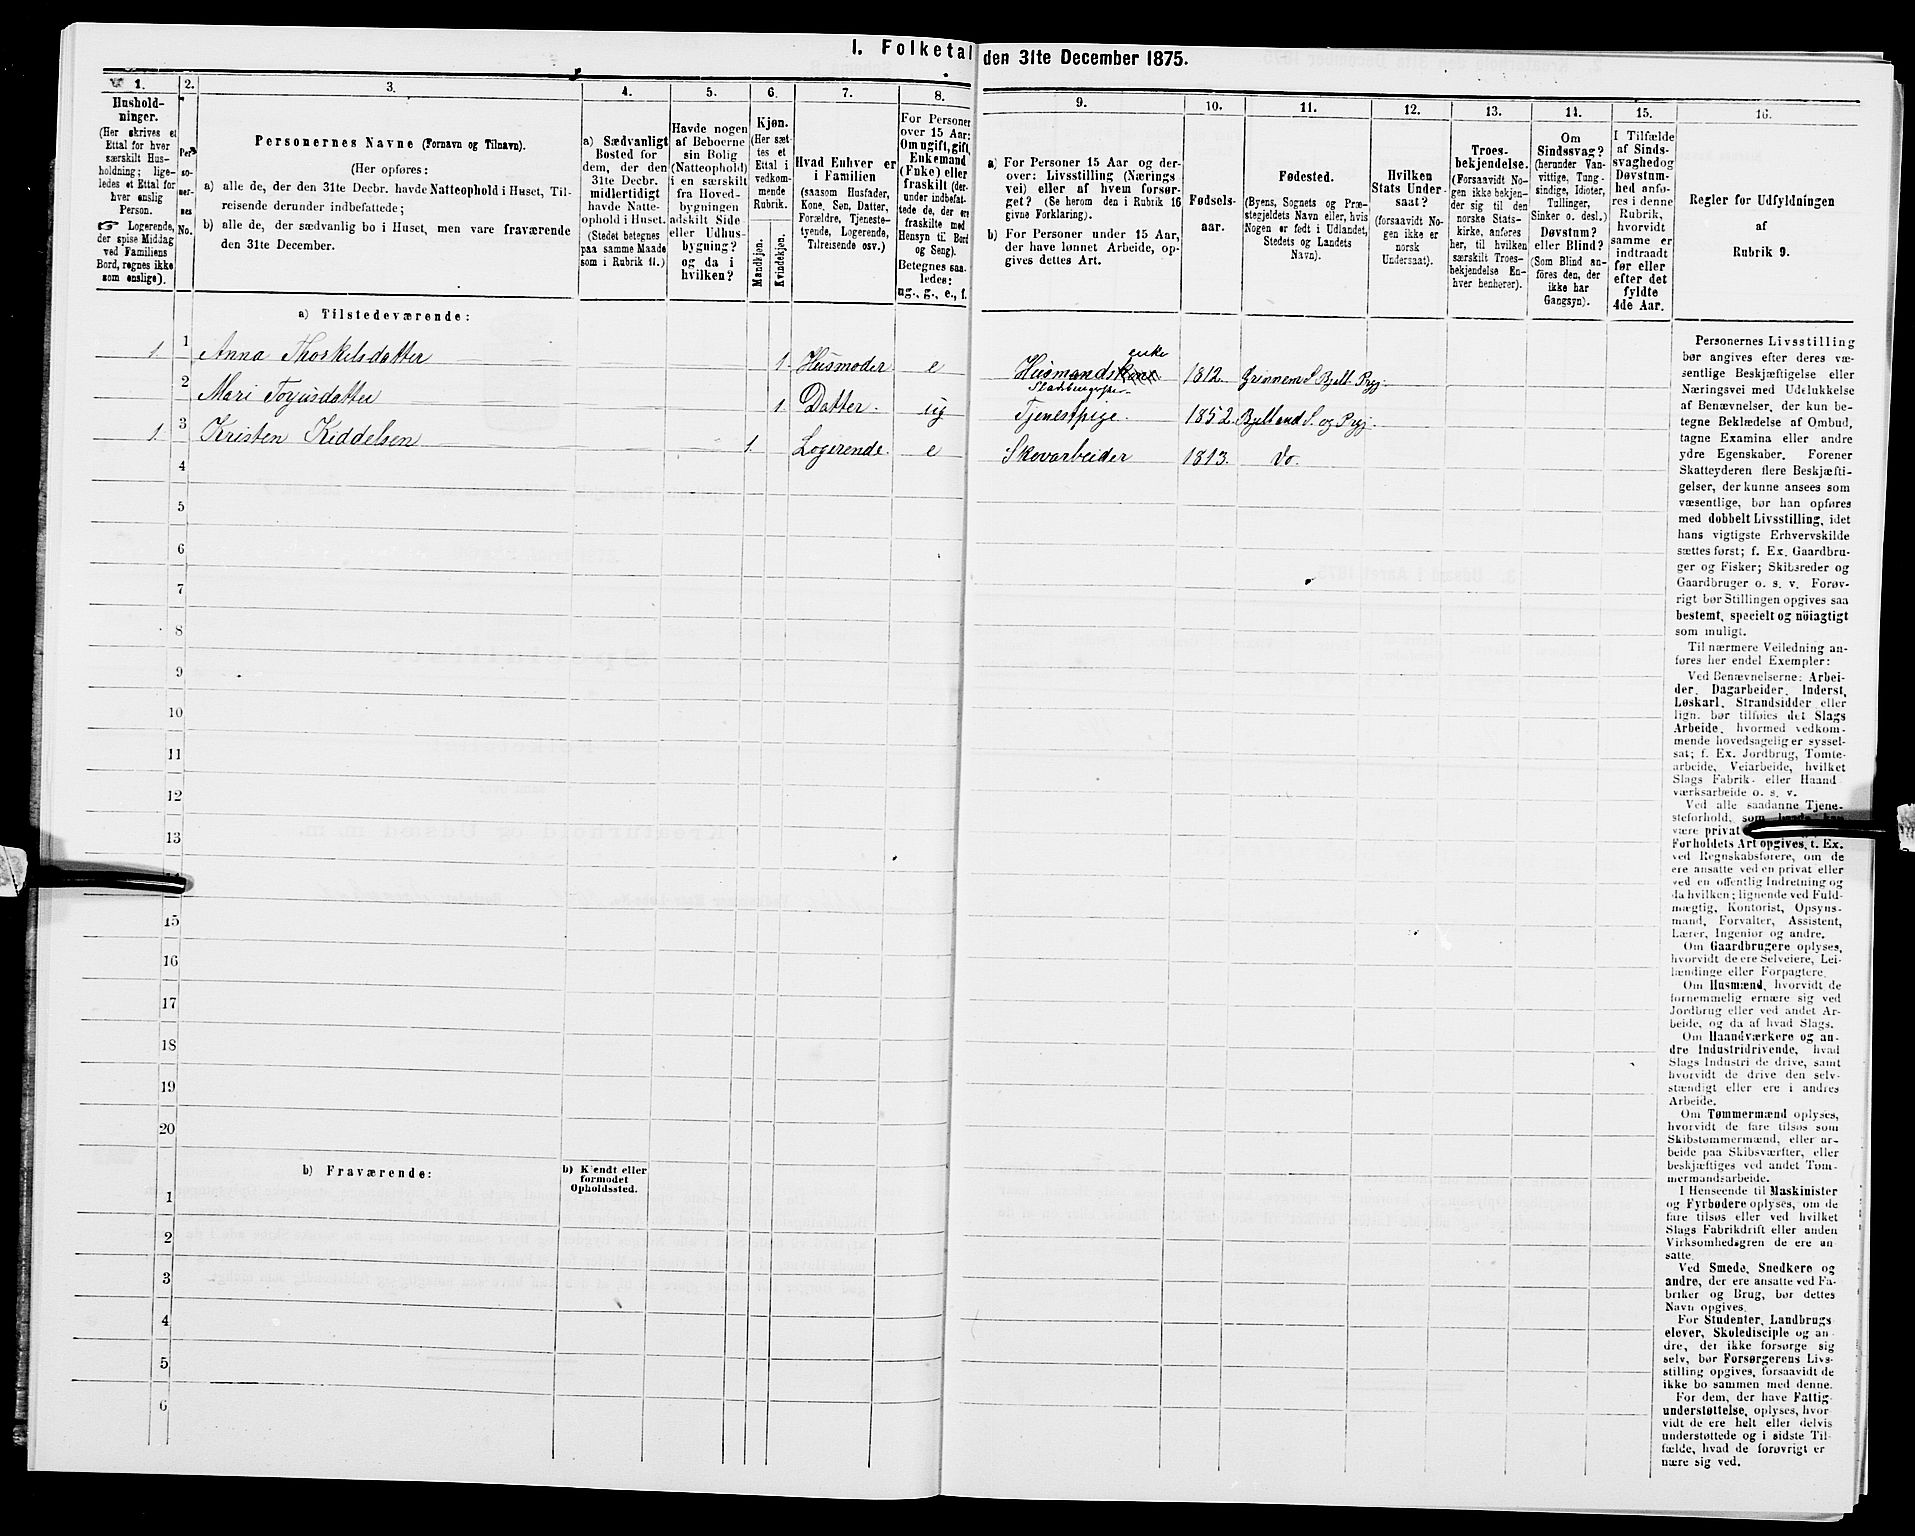 I. Folketal den 31te December 1875.
1.
Hushold-
ninger.
(Her skrives et
Ettal for hver
særskilt Hus-
holdning; lige-
ledes et Ettal for
hver enslig
Person.
☞ Logerende,
der spise Middag
ved Familiens
Bord, regnes ikke
som enslige).
2.
Per-
so-
ner-
nes
No.
3.
Personernes Navne (Fornavn og Tilnavn).
(Her opføres:
a) alle de, der den 31te Decbr. havde Natteophold i Huset, Til-
reisende derunder indbefattede;
b) alle de, der sædvanlig bo i Huset, men vare fraværende
den 31te December.
4.
a) Sædvanligt
Bosted for
dem, der den
31te Decbr.
midlertidigt
havde Natte-
ophold i Huset.
(Stedet betegnes
paa samme Maade
som i Rubrik 11.)
5.
Havde nogen
af Beboerne
sin Bolig
(Natteophold)
i en særskilt
fra Hoved-
bygningen
adskilt Side-
eller Udhus-
bygning?
og da i
hvilken?
6.
Kjøn.
(Her sæt-
tes et
Ettal i
vedkom-
mende
Rubrik.
Mandkjøn.
Kvindekjøn.
7.
Hvad Enhver er
i Familien
(saasom Husfader,
Kone, Søn, Datter,
Forældre, Tjeneste-
tyende, Logerende,
Tilreisende osv.)
8.
For Personer
over 15 Aar:
Om ugift, gift,
Enkemand
(Enke) eller
fraskilt (der-
under indbefat-
tede de, der ere
fraskilte med
Hensyn til Bord
og Seng).
Betegnes saa-
ledes:
ug., g., e., f.
9.
a) For Personer 15 Aar og der-
over: Livsstilling (Nærings-
vei) eller af hvem forsør-
get? (Se herom den i Rubrik 16
givne Forklaring).
b) For Personer under 15 Aar,
der have lønnet Arbeide, op-
gives dettes Art.
10.
Fødsels-
aar.
11.
Fødested.
(Byens, Sognets og Præ-
stegjeldets Navn eller, hvis
Nogen er født i Udlandet,
Stedets og Landets
Navn).
12.
Hvilken
Stats Under-
saat?
(forsaavidt No-
gen ikke er
norsk
Undersaat).
13.
Troes-
bekjendelse.
(Forsaavidt No-
gen ikke bekjen-
der sig til den
norske Stats-
kirke, anføres
her, til hvilken
særskilt Troes-
bekjendelse En-
hver henhører).
14.
Om
Sindssvag?
(herunder Van-
vittige, Tung-
sindige, Idioter,
Tullinger,
Sinker o. desl.)
Døvstum?
eller Blind?
(Som Blind an-
føres den, der
ikke har
Gangsyn).
15.
I Tilfælde
af Sinds-
svaghed og
Døvstum-
hed anfø-
res i denne
Rubrik,
hvorvidt
samme er
indtraadt
før eller
efter det
fyldte
4de Aar.
16.
Regler for Udfyldningen
af
Rubrik 9.
a) Tilstedeværende:
1 1 Anna Thorkelsdatter 1 Husmoder e Husmandskone enke 1812. Grinnem S Bjell. Prgj.
2 Mari Torjusdatter 1 Datter. ug Tjenestpige. 1852. Bjelland S. og Prgj.
1 3 Kristen Kiddelsen 1. Logerende. e Skovarbeider 1813. Do.
4
5
6
7
8
9
10
11
12
13
15
16
17
18
19
20
b) Fraværende:
b) Kjendt eller
formodet
Opholdssted.
1
2
3
4
5
6
Personernes Livsstilling
bør angives efter deres væ-
sentlige Beskjæftigelse eller
Næringsvei med Udelukkelse
af Benævnelser, der kun be-
tegne Beklædelse af Ombud,
tagne Examina eller andre
ydre Egenskaber. Forener
Skatteyderen flere Beskjæfti-
gelser, der kunne ansees som
væsentlige, bør han opføres
med dobbelt Livsstilling, idet
hans vigtigste Erhvervskilde
sættes først; f. Ex. Gaardbru-
ger og Fisker; Skibsreder og
Gaardbruger o. s. v. Forøv-
rigt bør Stillingen opgives saa
bestemt, specielt og nöiagtigt
som muligt.
Til nærmere Veiledning an-
føres her endel Exempler:
Ved Benævnelserne: Arbei-
der, Dagarbeider, Inderst,
Løskarl, Strandsidder eller
lign. bør tilføies det Slags
Arbeide, hvormed vedkom-
mende hovedsagelig er syssel-
sat; f. Ex. Jordbrug, Tomte-
arbeide, Veiarbeide, hvilket
Slags Fabrik- eller Haand-
værksarbeide o. s. v.
Ved alle saadanne Tjene-
steforhold, som baade kan
være privat
Forholdets Art opgives, t. Ex.
ved Regnskabsførere, om de
ere ansatte ved en privat eller
ved en offentlig Indretning og
da hvilken; lignende ved Fuld-
mægtig, Kontorist, Opsyns-
mand, Forvalter, Assistent,
Lærer, Ingeniør og andre.
Om Gaardbrugere oplyses,
hvorvidt de ere Selveiere, Lei-
lændinge eller Forpagtere.
Om Husmænd, hvorvidt de
fornemmelig ernære sig ved
Jordbrug eller ved andet Ar-
beide, og da af hvad Slags.
Om Haandværkere og an-
dre Industridrivende, hvad
Slags Industri de drive, samt
hvorvidt de drive den selv-
stændigt eller ere i andres
Arbeide.
Om Tømmermænd oplyses,
hvorvidt de fare tilsøs som
Skibstømmermænd, eller ar-
beide paa Skibsværfter, eller
beskjæftiges ved andet Tøm-
mermandsarbeide.
I Henseende til Maskinister
og Fyrbødere oplyses, om de
fare tilsøs eller ved hvilket
Slags Fabrikdrift eller anden
Virksomhedsgren de ere an-
satte.
Ved Smede, Snedkere og
andre, der ere ansatte ved Fa-
briker og Brug, bør dettes
Navn opgives.
For Studenter, Landbrugs-
elever, Skoledisciple og an-
dre, der ikke forsørge sig
selv, bør Forsørgerens Livs-
stilling opgives, forsaavidt de
ikke bo sammen med denne.
For dem, der have Fattig-
understøttelse, oplyses, hvor-
vidt de ere helt eller delvis
understøttede og i sidste Til-
fælde, hvad de forøvrigt er-
nære sig ved.